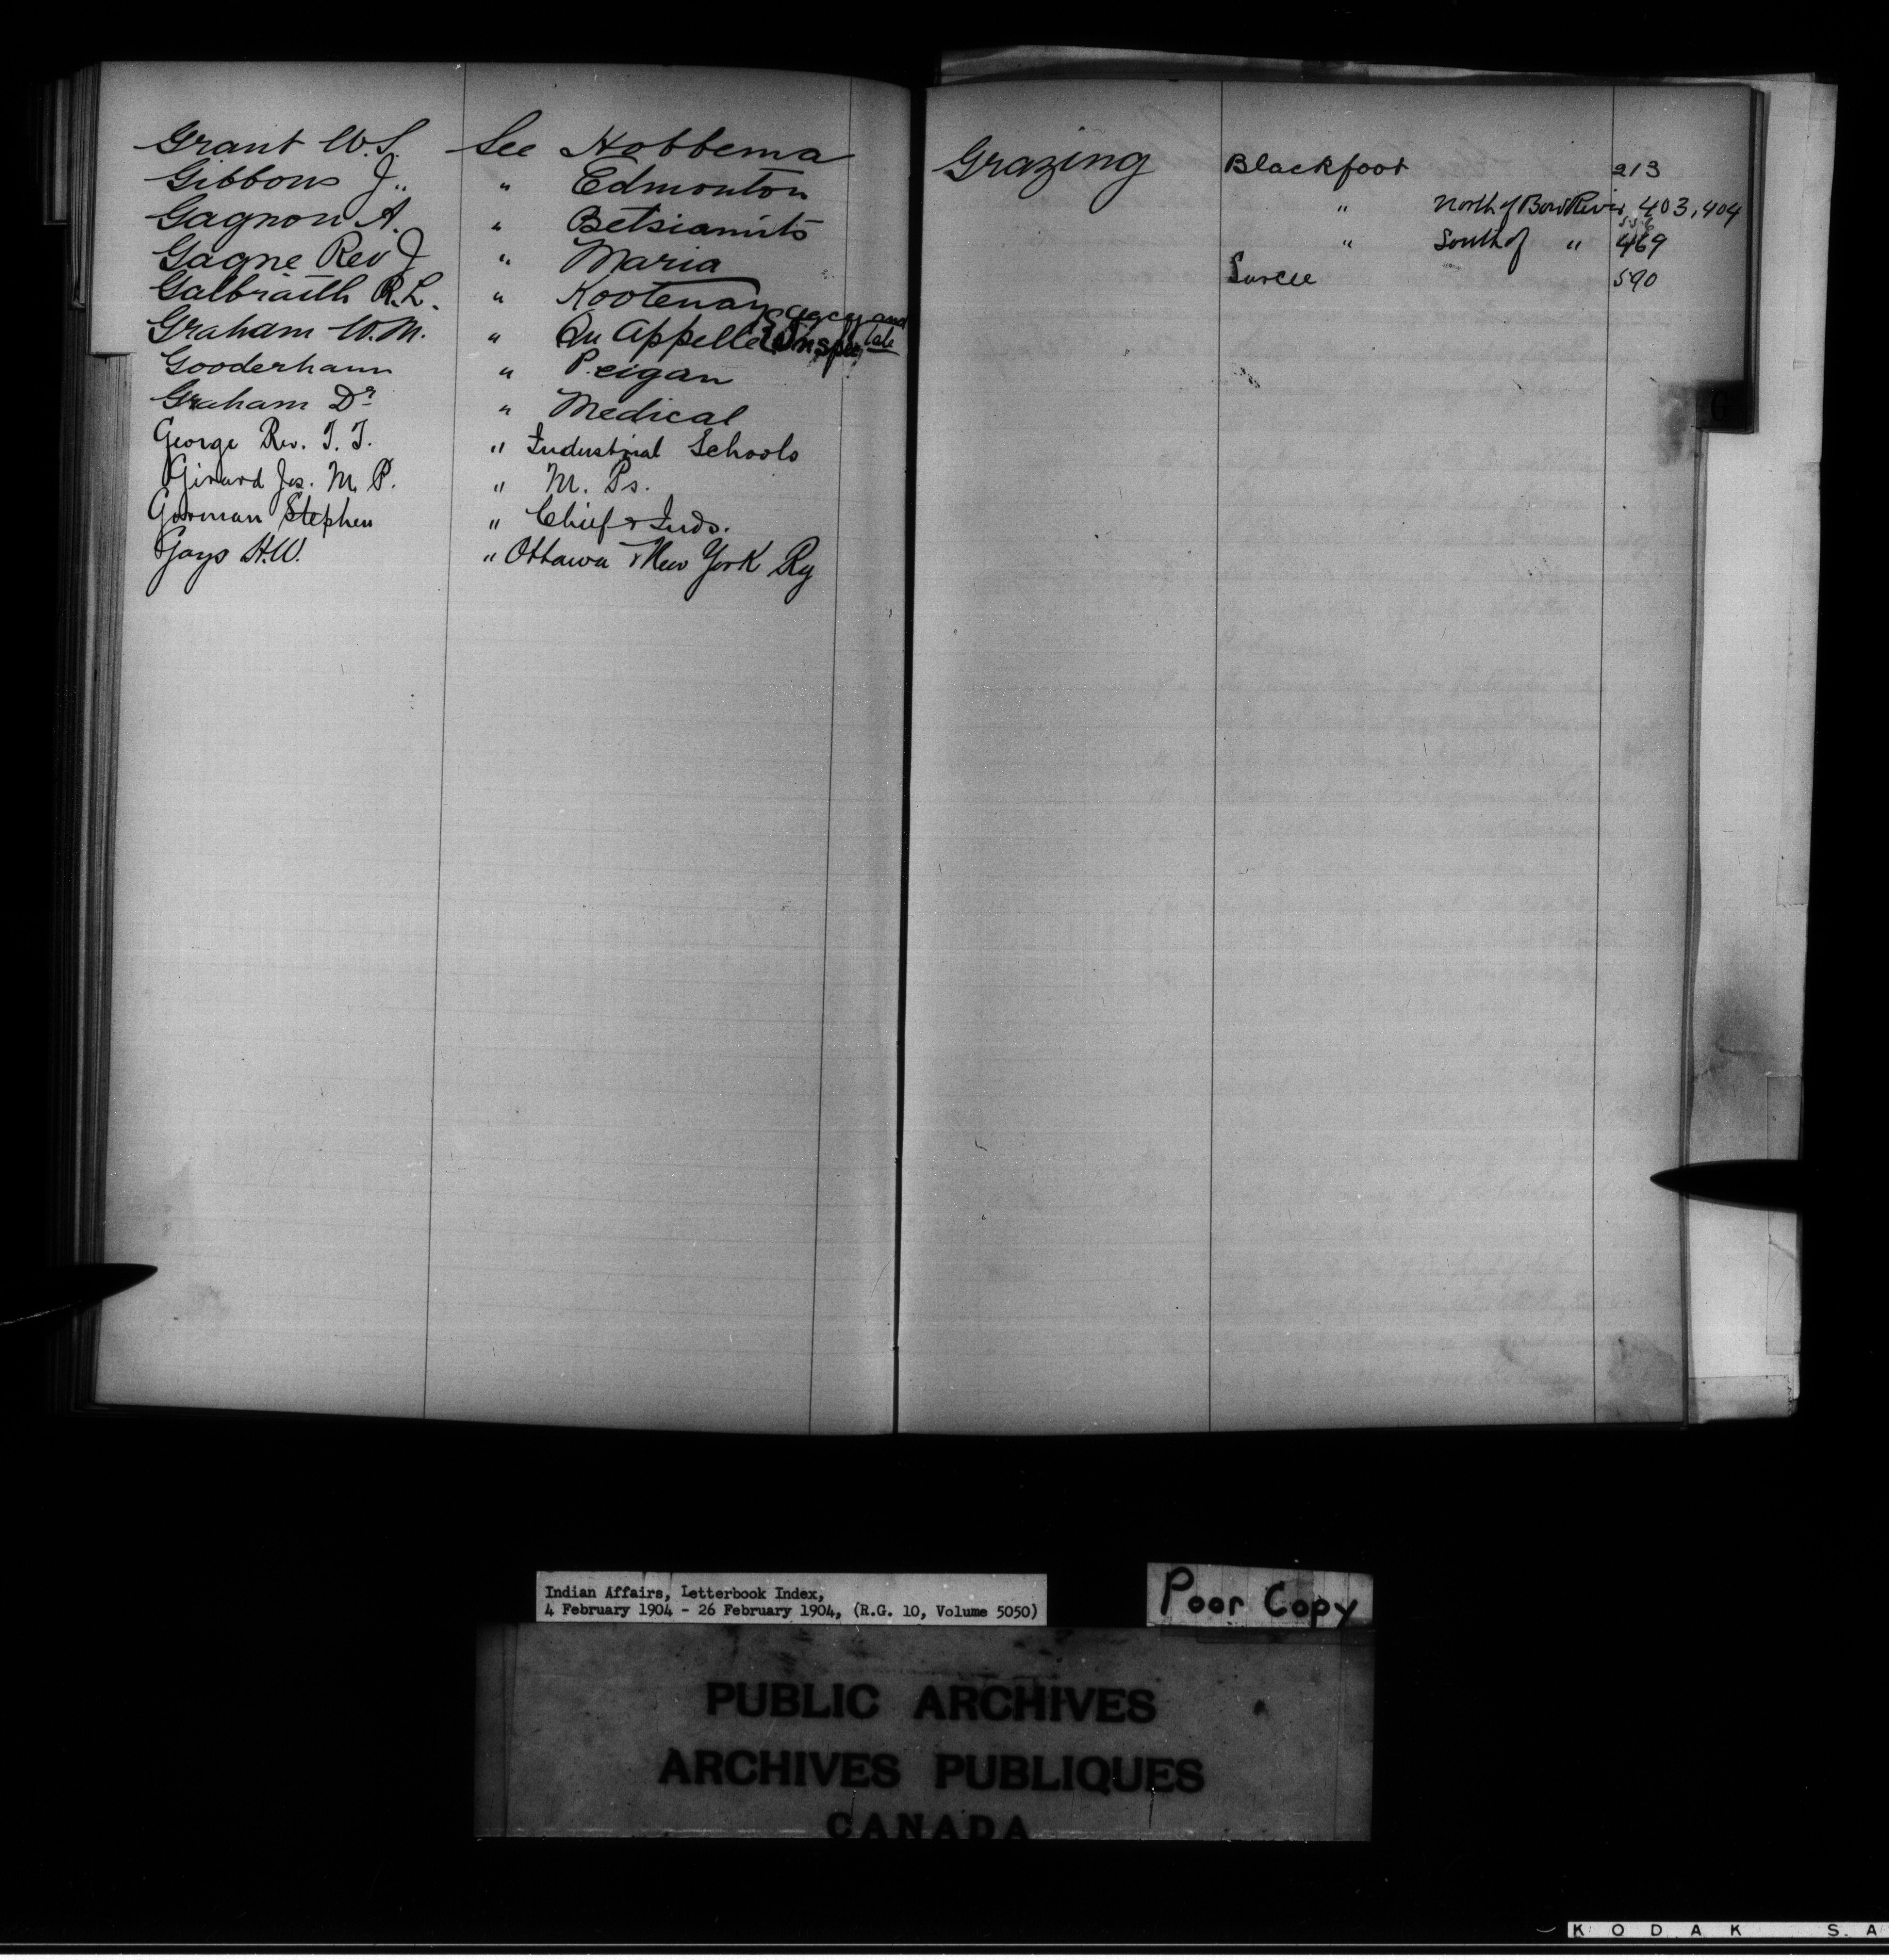 Grant W.S. See Hobbema
Gibbons J. " Edmonton
Gagnon A. " Betsiamits
Gagne Rev J " Maria
Galbraith R.L. " Kootenay
Graham W.M. " Qu Appelle Agcy and Inspectorate
Gooderham " Peigan
Graham Dr " Medical
George Rev. T. T. " Industrial Schools
Girard Jos. M. P. " M. Ps.
Gorman Stephen " Chief & Inds.
Gays H.W. " Ottawa & New York Ry
Grazing Blackfoot 213
" North of Bow River 403, 404
556
" South of " 469
Sarcee 590
G
Indian Affairs, Letterbook Index,
4 February 1904 - 26 February 1904, (R.G. 10, Volume 5050)
Poor Copy
PUBLIC ARCHIVES
ARCHIVES PUBLIQUES
CANADA
KODAK S.A